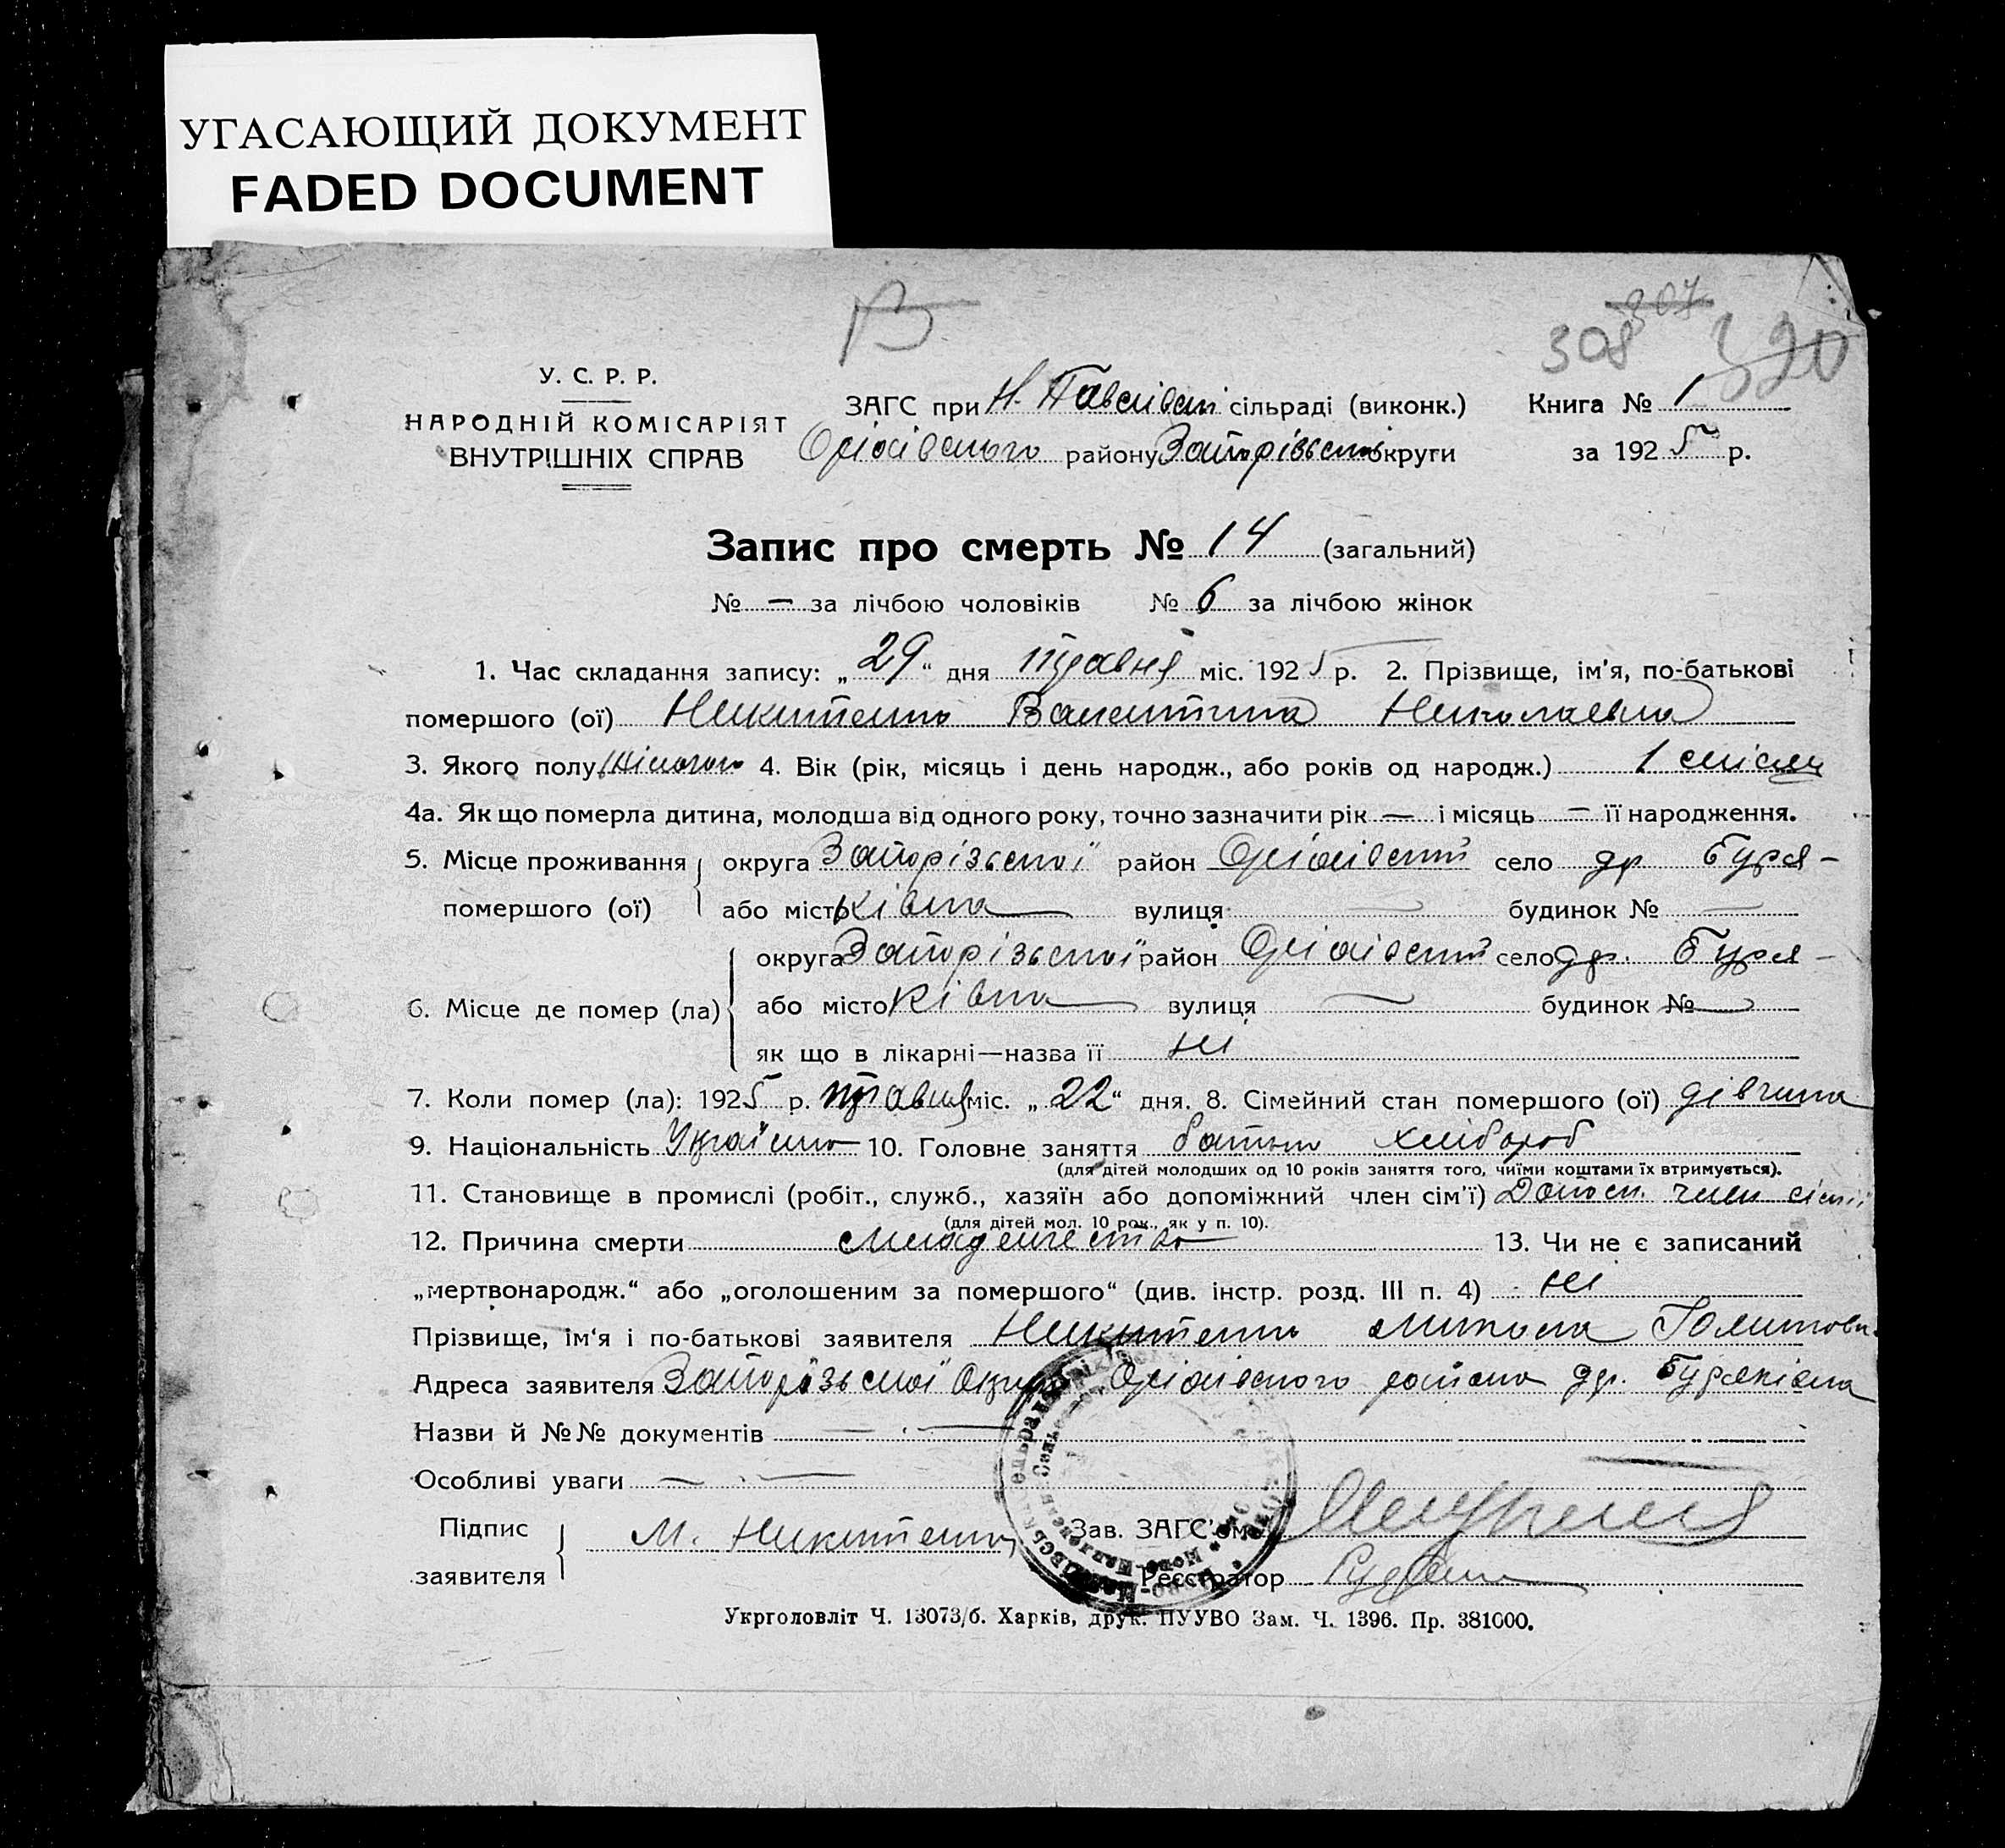 УГАСАЮЩИЙ ДОКУМЕНТ
FADED DOCUMENT
В
307
308 320
У. С. Р. Р.
НАРОДНІЙ КОМІСАРІЯТ
ВНУТРІШНІХ СПРАВ
ЗАГС при Н. Павлівській сільраді (виконк.)
Оріхівського району Запорізької округи
Книга № 1
за 1925 р.
Запис про смерть № 14 (загальний)
№ — за лічбою чоловіків № 6 за лічбою жінок
1. Час складання запису: „29“ дня травня міс. 1925 р. 2. Прізвище, ім'я, по-батькові
помершого (ої) Никитенко Валентина Николаевна
3. Якого полу жіночого 4. Вік (рік, місяць і день народж., або років од народж.) 1 місяц
4а. Як що померла дитина, молодша від одного року, точно зазначити рік — і місяць — її народження.
5. Місце проживання помершого (ої) округа Запорізької район Оріхівський село др Буря-
або місто ківка вулиця — будинок № —
6. Місце де помер (ла) округа Запорізької район Оріхівський село др. Буря-
або місто ківка вулиця — будинок № —
як що в лікарні—назва її ні
7. Коли помер (ла): 1925 р. травня міс. „22“ дня. 8. Сімейний стан помершого (ої) дівчина
9. Національність Україн. 10. Головне заняття батько хлібороб
(для дітей молодших од 10 років заняття того, чиїми коштами їх втримується).
11. Становище в промислі (робіт., служб., хазяїн або допоміжний член сім'ї) Допом. член сімї
(для дітей мол. 10 рок., як у п. 10).
12. Причина смерти младенчество 13. Чи не є записаний
„мертвонародж.“ або „оголошеним за помершого“ (див. інстр. розд. III п. 4) ні
Прізвище, ім'я і по-батькові заявителя Никитенко Микола
Адреса заявителя Запорізької Округи Оріхівського района др. Буряківка
Назви й №№ документів —
Особливі уваги —
Підпис
заявителя М. Никитенко
Зав. ЗАГС'ом
Реєстратор
Укрголовліт Ч. 13073/б. Харків, друк. ПУУВО Зам. Ч. 1396. Пр. 381000.